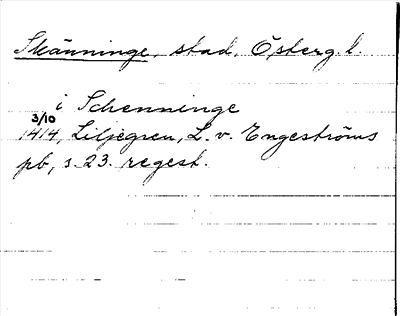 Skänninge, stad, Österg. l.
i Schenninge
3/10
1414, Liljegren, L. v. Engeströms
pb, s. 23. regest.